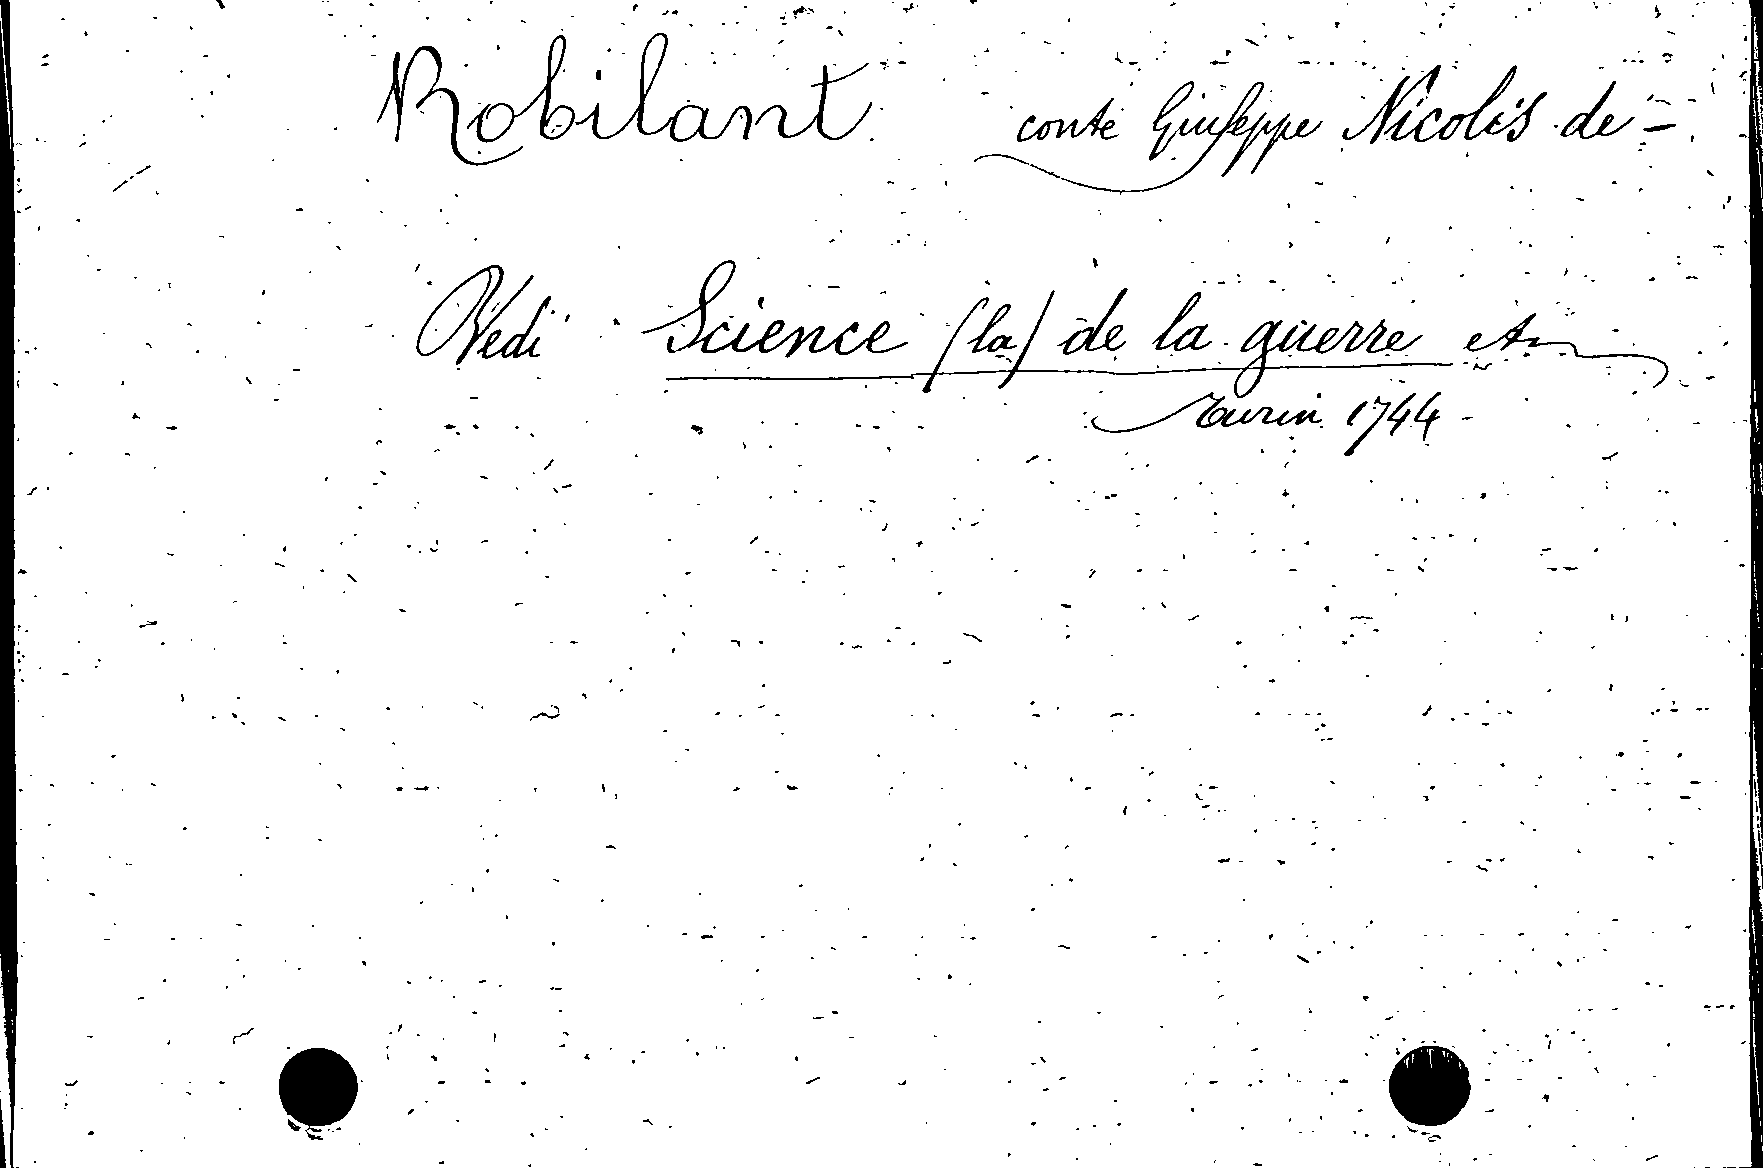 Robilant conte Giuseppe Nicolis de -
Vedi Science (la) de la guerre etc
Turin 1744 -